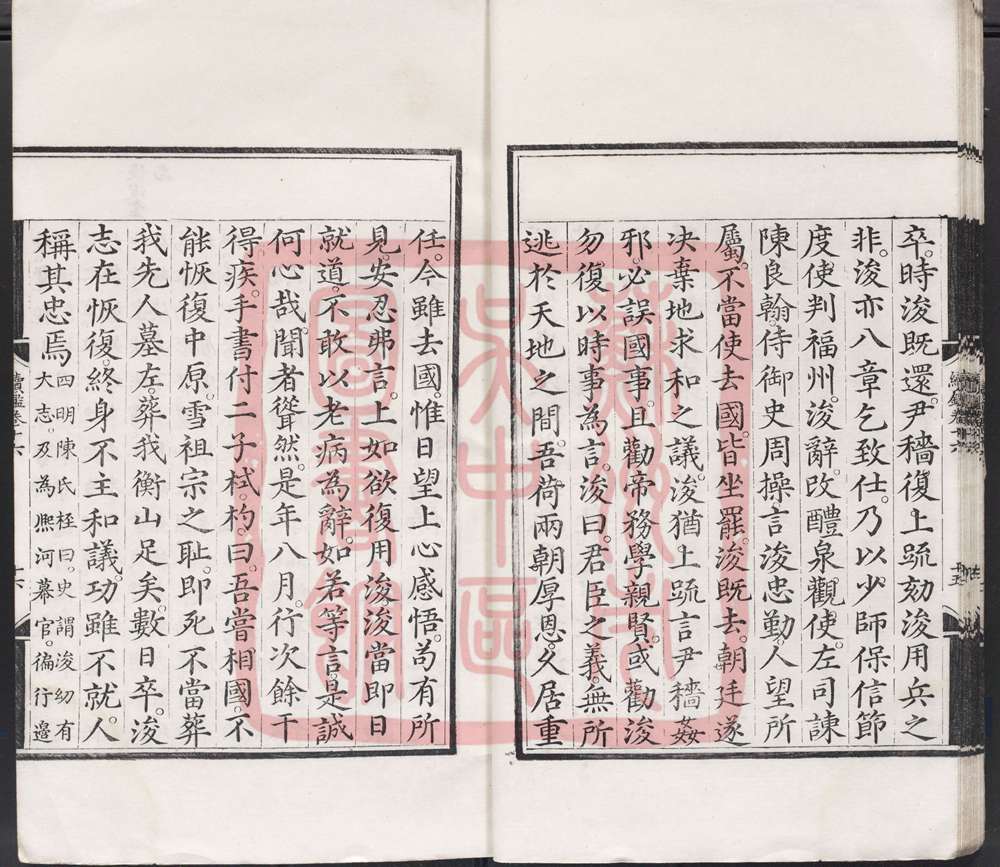 卒。時浚既還。尹穡復上疏劾浚用兵之
非。浚亦八章乞致仕。乃以少師保信節
度使判福州。浚辭。改醴泉觀使。左司諫
陳良翰侍御史周操言浚忠勤人望所
屬。不當使去國。皆坐罷。浚既去。朝廷遂
决棄地求和之議。浚猶上疏言尹穡姦
邪。必誤國事。且勸帝務學親賢。或勸浚
勿復以時事為言。浚曰。君臣之義。無所
逃於天地之間。吾荷兩朝厚恩。久居重
任。今雖去國。惟日望上心感悟。苟有所
見。安忍弗言。上如欲復用浚。浚當即日
就道。不敢以老病為辭。如若等言。是誠
何心哉。聞者聳然。是年八月。行次餘干
得疾。手書付二子栻。杓。曰。吾嘗相國。不
能恢復中原。雪祖宗之恥。即死不當葬
我先人墓左。葬我衡山足矣。數日卒。浚
志在恢復。終身不主和議。功雖不就。人
稱其忠焉
四明陳氏桱曰。史謂浚幼有
大志。及為熈河幕官。徧行邊
續鑑卷十六
十六
蘇州市
吴中區
圖書館